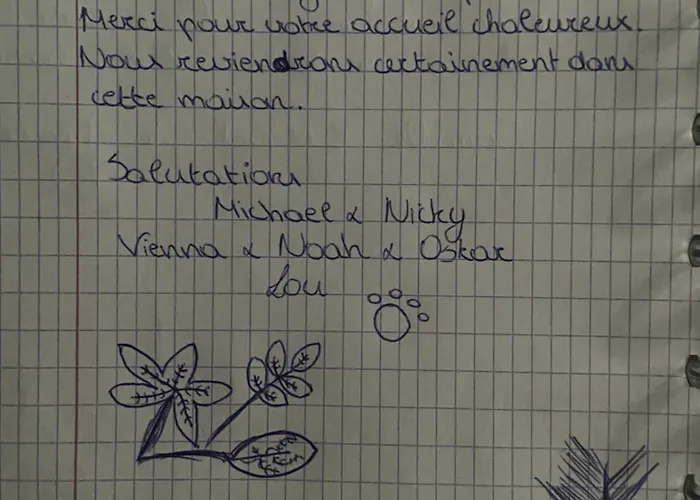 Merci pour votre accueil chaleureux.
Nous reviendrons certainement dans
cette maison.
Salutations
Michael & Nicky
Vienna & Noah & Oskar
Lou